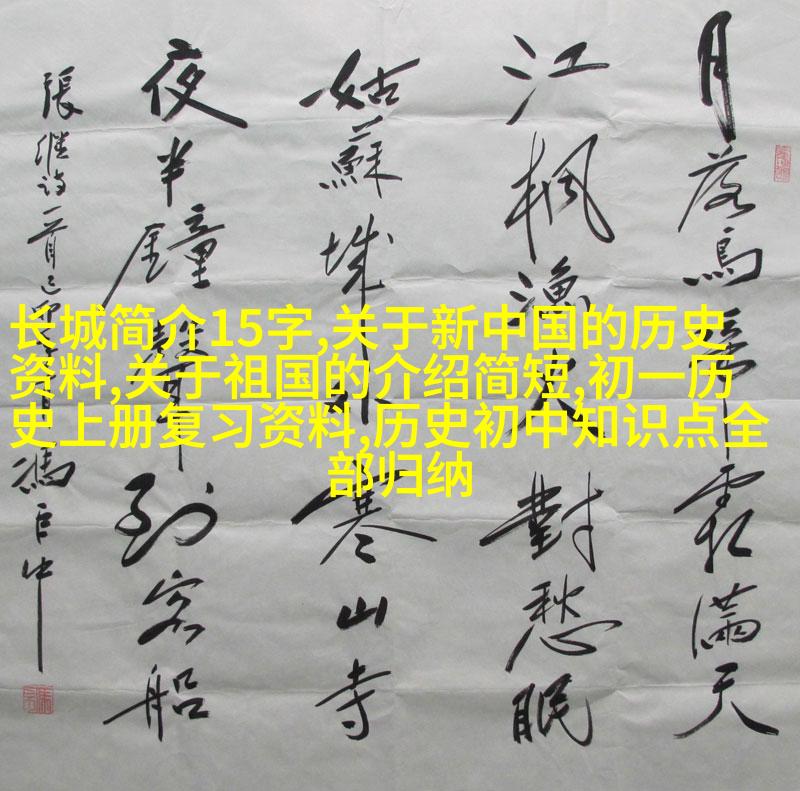 长城简介15字,关于新中国的历史
资料,关于祖国的介绍简短,初一历
史上册复习资料,历史初中知识点全
部归纳
月落烏啼霜滿天
江楓漁火對愁眠
姑蘇城外寒山寺
夜半鐘聲到客船
張继诗一首